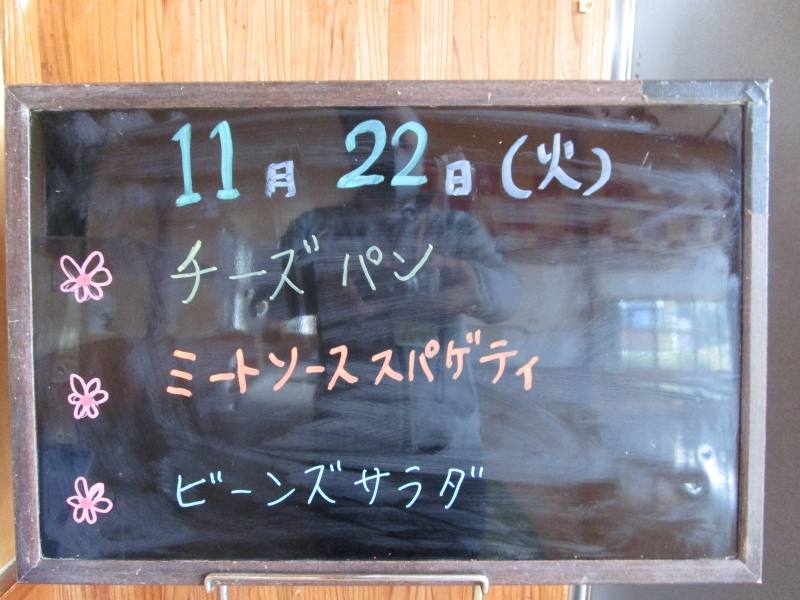 11月 22日 (火)
チーズ パン
ミートソース スパゲティ
ビーンズサラダ